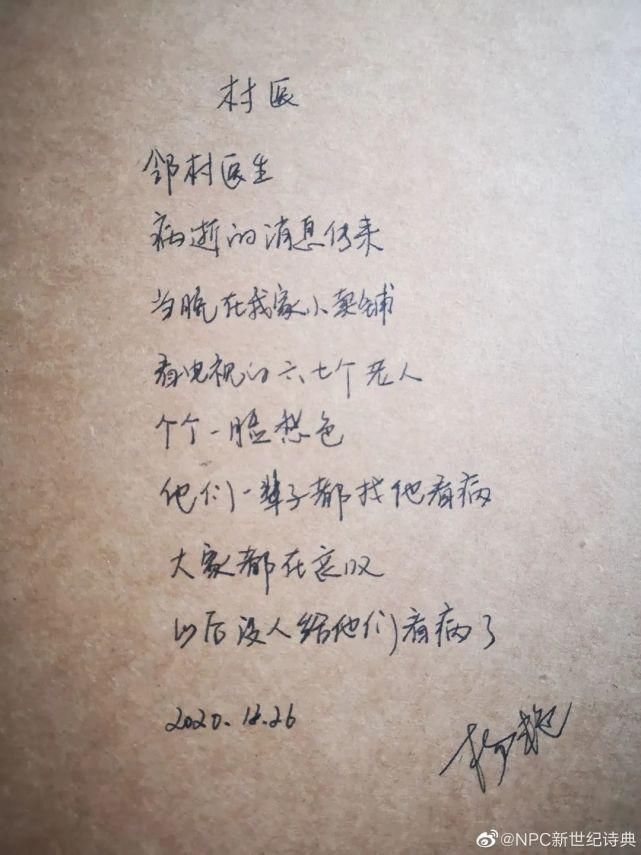 村医
邻村医生
病逝的消息传来
当晚在我家小卖铺
看电视的六七个老人
个个一脸愁色
他们一辈子都找他看病
大家都在哀叹
以后没人给他们看病了
2020.12.26
@NPC新世纪诗典